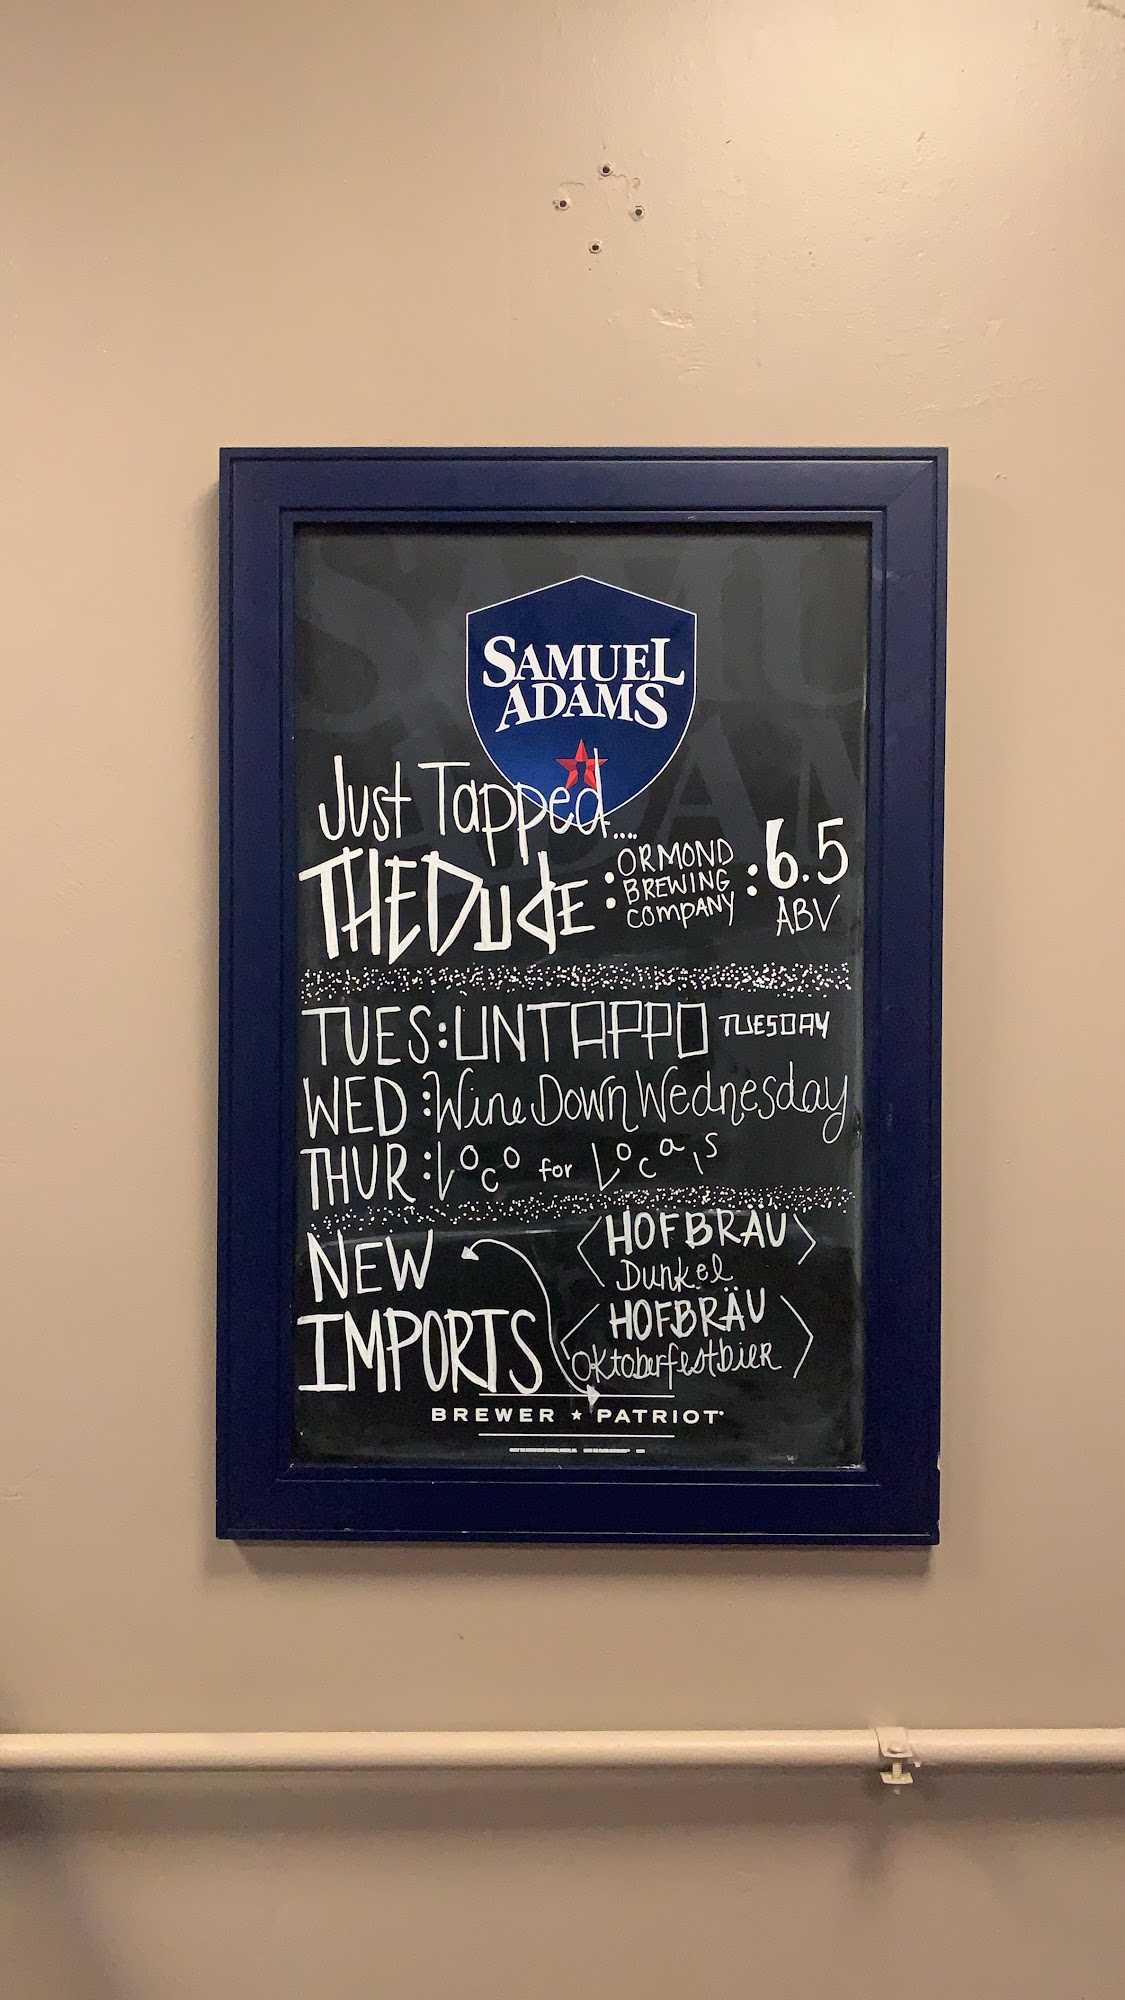 SAMUEL
ADAMS
Just Tapped....
THE DUdE : ORMOND BREWING COMPANY : 6.5 ABV
TUES: UNTAPPD TUESDAY
WED: Wine Down Wednesday
THUR: Loco for Locals
NEW IMPORTS
HOFBRÄU
Dunkel
HOFBRÄU
Oktoberfestbier
BREWER ★ PATRIOT